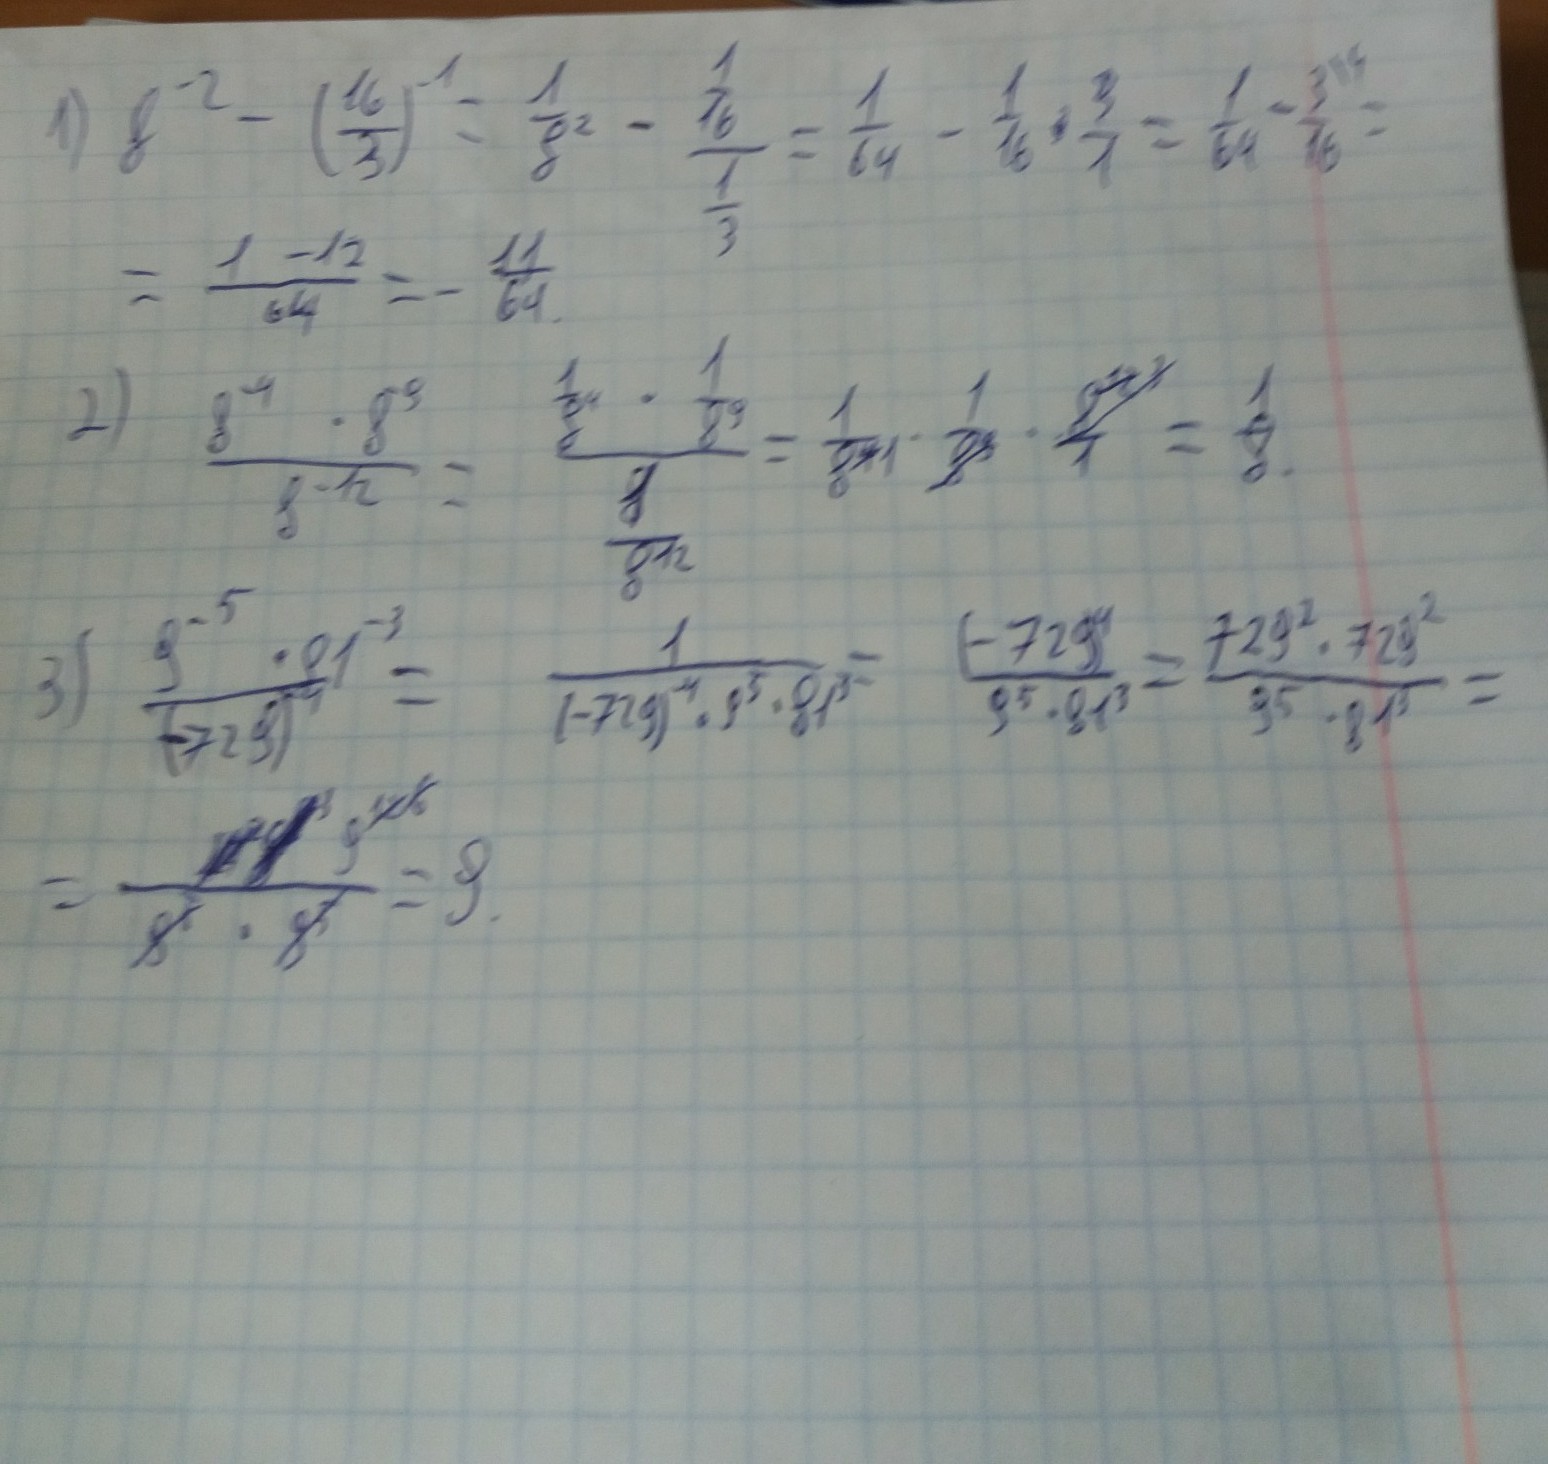 1) 8^-2 - (16/3)^-1 = 1/8^2 - (1/16)/(1/3) = 1/64 - 1/16 · 3/1 = 1/64 - 3/16 =
= (1 - 12)/64 = - 11/64.
2) (8^-4 · 8^9)/8^-12 = (1/8^4 · 1/8^9)/(1/8^12) = · · = 1/8.
3) (9^-5 · 81^-3)/(-729)^-4 = 1/((-729)^-4 · 9^5 · 81^3) = (-729)^4/(9^5 · 81^3) = (729^2 · 729^2)/(9^5 · 81^3) =
= = 9.